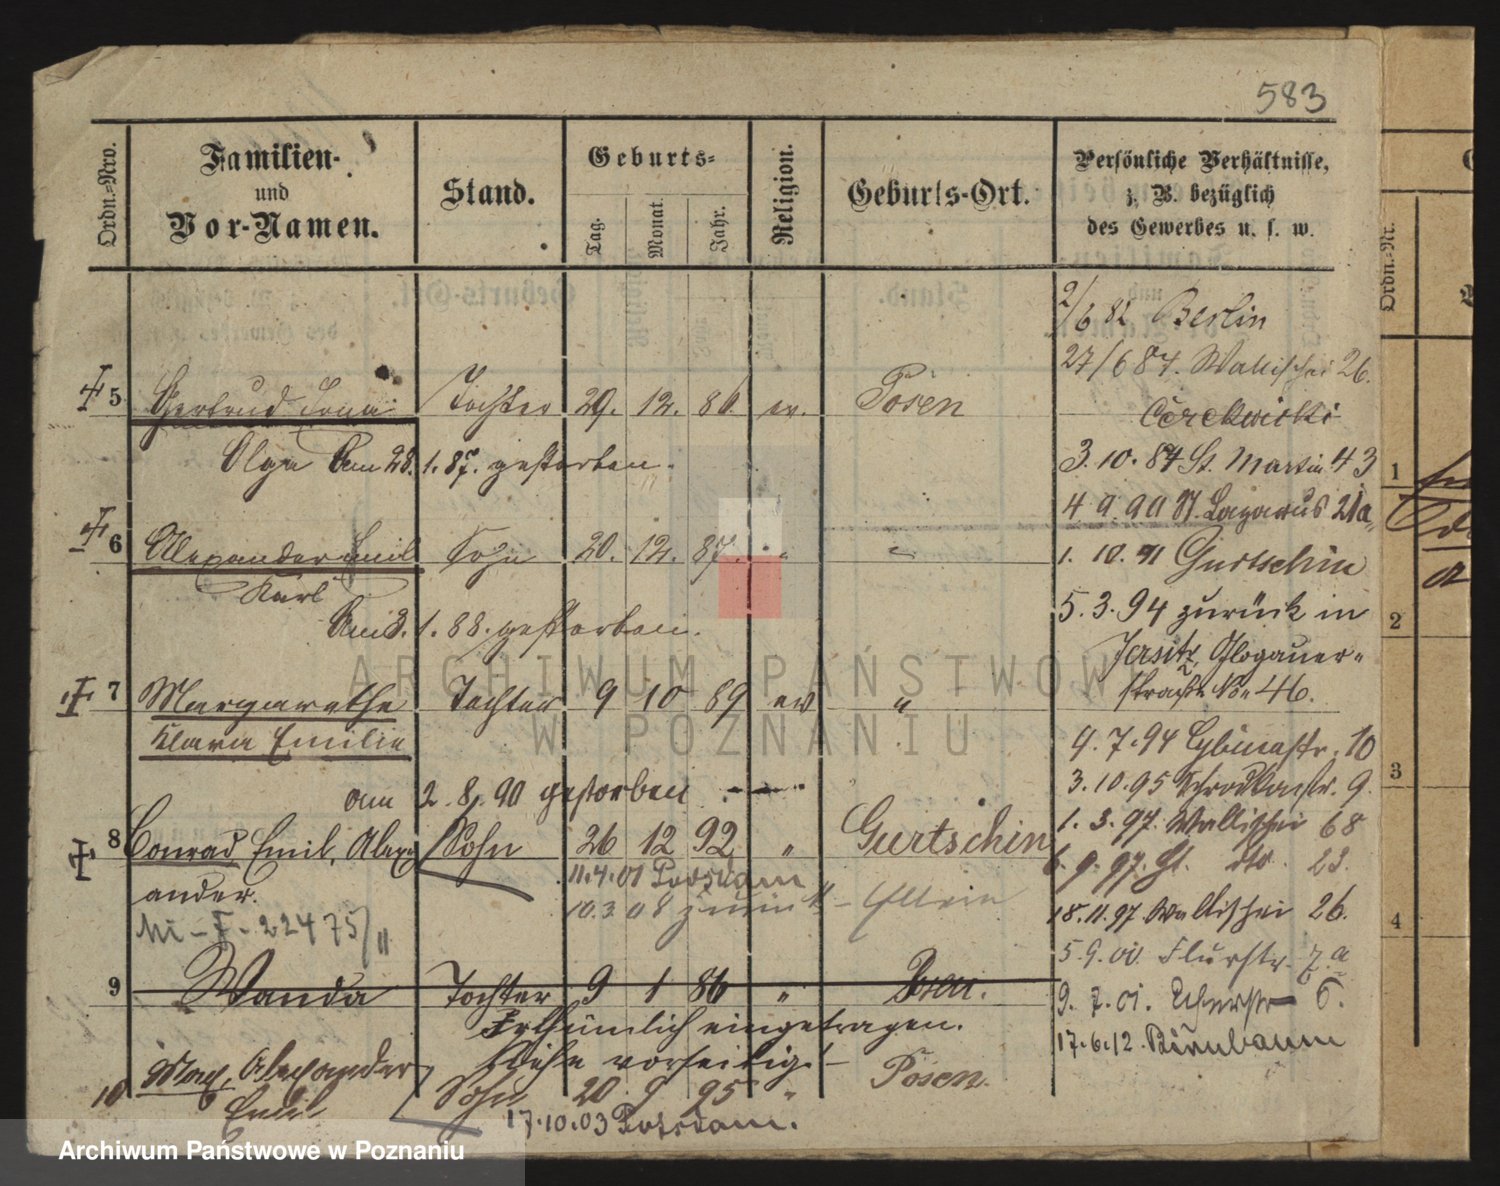 583
Ordn.-Nro.
Familien-
und
Vor-Namen.
Stand.
Geburts-
Tag.
Monat.
Jahr.
Religion.
Geburts-Ort.
Persönliche Verhältnisse,
z. B. bezüglich
des Gewerbes u. s. w.
2/6 82 Berlin
27/6 87. Wallischei 26.
5 Gertrud Tochter 29. 12. 86. ev. Posen
Olga Am 28. 1. 87. gestorben.
3. 10. 87 St. Martin 43
4 9. 90 St. Lazarus 21a
6 Alexander Emil Sohn 20. 12. 87. "
Karl
1. 10. 91 Gurtschin
Am 3. 1. 88. gestorben.
5. 3. 94 zurück in
Jersitz, Glogauer-
straße No 46.
7 Margarethe Tochter 9 10 89 ev "
Klara Emilie
4. 7. 94 Cybinastr. 10
am 2. 8. 90 gestorben
3. 10. 95 Schrodkastr. 9.
8 Conrad Emil, Alex- Sohn 26 12 92 " Gurtschin
ander.
1. 3. 97. Wallischei 68
11.4.01 Potsdam
6. 9. 97. dto. 23.
10.3.08 zurück -
18. 11. 97. Wallischei 26.
22475/"
5. 9. 00. Flurstr. 7a
9 Wanda Tochter 9 1 86 " Posen.
9. 7. 01. 6.
Irthümlich eingetragen.
17. 6. 12. Birnbaum
Siehe vorseitig! -
10 Max, Alexander Sohn 20 9 95 " Posen.
Emil
17.10.03 Potsdam.
Ordn.-Nr.
1
2
3
4
ARCHIWUM PAŃSTWOWE
W POZNANIU
Archiwum Państwowe w Poznaniu